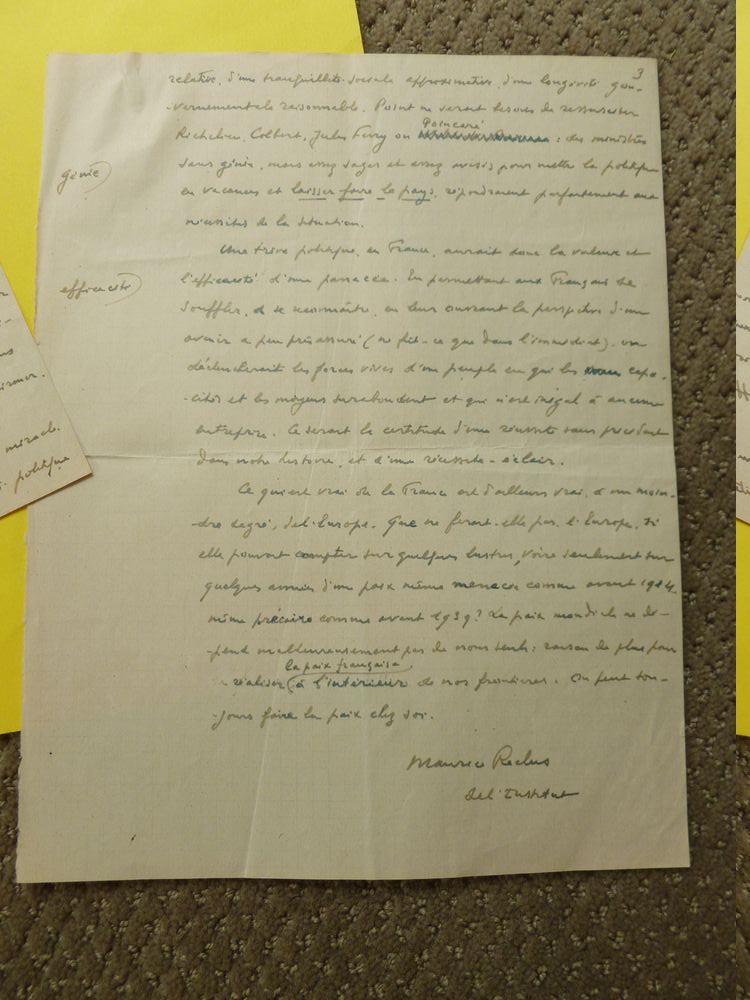 3
relative, d'une tranquillité sociale approximative, d'une longévité gou-
-vernementale raisonnable. Point ne serait besoin de ressusciter
Poincaré
Richelieu, Colbert, Jules Ferry ou : des ministres
sans génie, mais assez sages et assez avisés pour mettre la politique
génie
en vacances et laisser faire le pays, répondraient parfaitement aux
nécessités de la situation.
Une trève politique, en France, aurait donc la valeur et
efficacité
l'efficacité d'une panacée. En permettant aux Français de
souffler, de se reconnaître, en leur ouvrant la perspective d'un
avenir à peu près assuré (ne fût-ce que dans l'immédiat), on
déclencherait les forces vives d'un peuple en qui les capa-
-cités et les moyens surabondent et qui n'est inégal à aucune
entreprise. Ce serait la certitude d'une réussite sans précédent
dans notre histoire, et d'une réussite-éclair.
Ce qui est vrai de la France est d'ailleurs vrai, à un moin-
-dre degré, de l'Europe. Que ne ferait-elle pas, l'Europe, si
elle pouvait compter sur quelques lustres, voire seulement sur
quelques années d'une paix même menacée comme avant 1914,
même précaire comme avant 1939? La paix mondiale ne dé-
-pend malheureusement pas de nous seuls: raison de plus pour
la paix française
réaliser à l'intérieur de nos frontières. On peut tou-
-jours faire la paix chez soi.
Maurice Reclus
de l'Institut
miracl.
politique